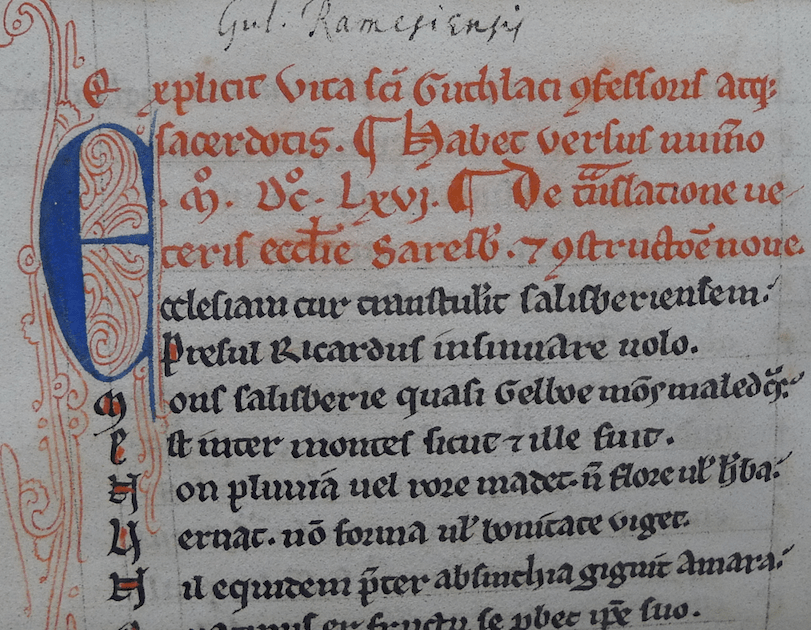 Gul. Ramesiensis
Explicit vita sc̄i Guthlaci ꝯfessoris atq;
sacerdotis. ¶ Habet versus numͤo
. Mͦ. Dͦc. Lxvj. ¶ De tͣnslatione ue
teris eccl̄ie Saresb̄. ⁊ ꝯstructōe noue.
Ecclesiam cur transtulit salisberiensem.
Presul Ricardus insinuare uolo.
Mons salisberie quasi Gelboe mōs maledcͣs.
Est inter montes sicut ⁊ ille fuit.
Non pluuiā uel rore madet. n̄ flore ul̄ h̄ba.
Vernat. nō forma ul̄ bonitate viget.
Nil equidem p̄ter absinthia gignit amara.
fructu se ꝓbet ip̄e suo.